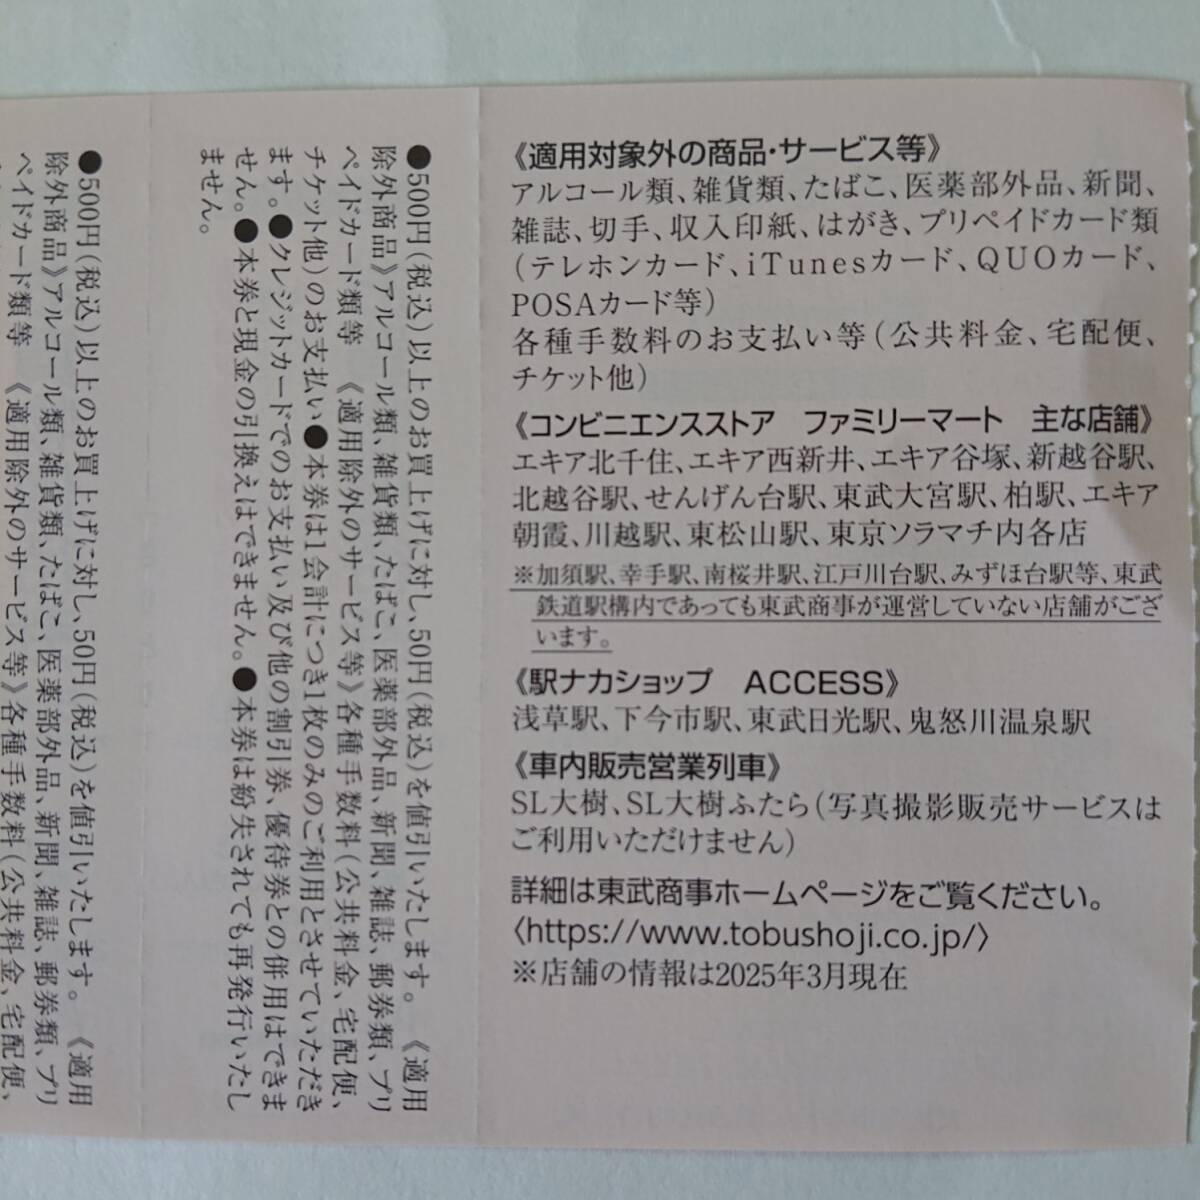 《適用対象外の商品・サービス等》
アルコール類、雑貨類、たばこ、医薬部外品、新聞、
雑誌、切手、収入印紙、はがき、プリペイドカード類
(テレホンカード、iTunesカード、QUOカード、
POSAカード等)
各種手数料のお支払い等(公共料金、宅配便、
チケット他)
《コンビニエンスストア　ファミリーマート　主な店舗》
エキア北千住、エキア西新井、エキア谷塚、新越谷駅、
北越谷駅、せんげん台駅、東武大宮駅、柏駅、エキア
朝霞、川越駅、東松山駅、東京ソラマチ内各店
※加須駅、幸手駅、南桜井駅、江戸川台駅、みずほ台駅等、東武
鉄道駅構内であっても東武商事が運営していない店舗がござ
います。
《駅ナカショップ　ACCESS》
浅草駅、下今市駅、東武日光駅、鬼怒川温泉駅
《車内販売営業列車》
SL大樹、SL大樹ふたら(写真撮影販売サービスは
ご利用いただけません)
詳細は東武商事ホームページをご覧ください。
〈https://www.tobushoji.co.jp/〉
※店舗の情報は2025年3月現在
●500円(税込)以上のお買上げに対し、50円(税込)を値引いたします。《適用
除外商品》アルコール類、雑貨類、たばこ、医薬部外品、新聞、雑誌、郵券類、プリ
ペイドカード類等　《適用除外のサービス等》各種手数料(公共料金、宅配便、
チケット他)のお支払い●本券は1会計につき1枚のみのご利用とさせていただき
ます。●クレジットカードでのお支払い及び他の割引券、優待券との併用はできま
せん。●本券と現金の引換えはできません。●本券は紛失されても再発行いたし
ません。
●500円(税込)以上のお買上げに対し、50円(税込)を値引いたします。《適用
除外商品》アルコール類、雑貨類、たばこ、医薬部外品、新聞、雑誌、郵券類、プリ
ペイドカード類等　《適用除外のサービス等》各種手数料(公共料金、宅配便、